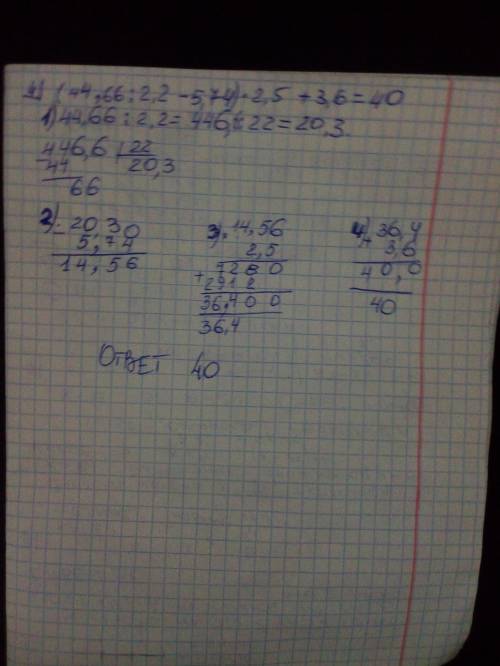 4) (44,66:2,2-5,74)·2,5+3,6=40
1) 44,66:2,2=446,6:22=20,3
446,6 | 22
- 44 20,3
66
2) 20,30
- 5,74
14,56
3) 14,56
2,5
7280
+ 2912
36,400
36,4
4) 36,4
+ 3,6
40,0
40
Ответ 40